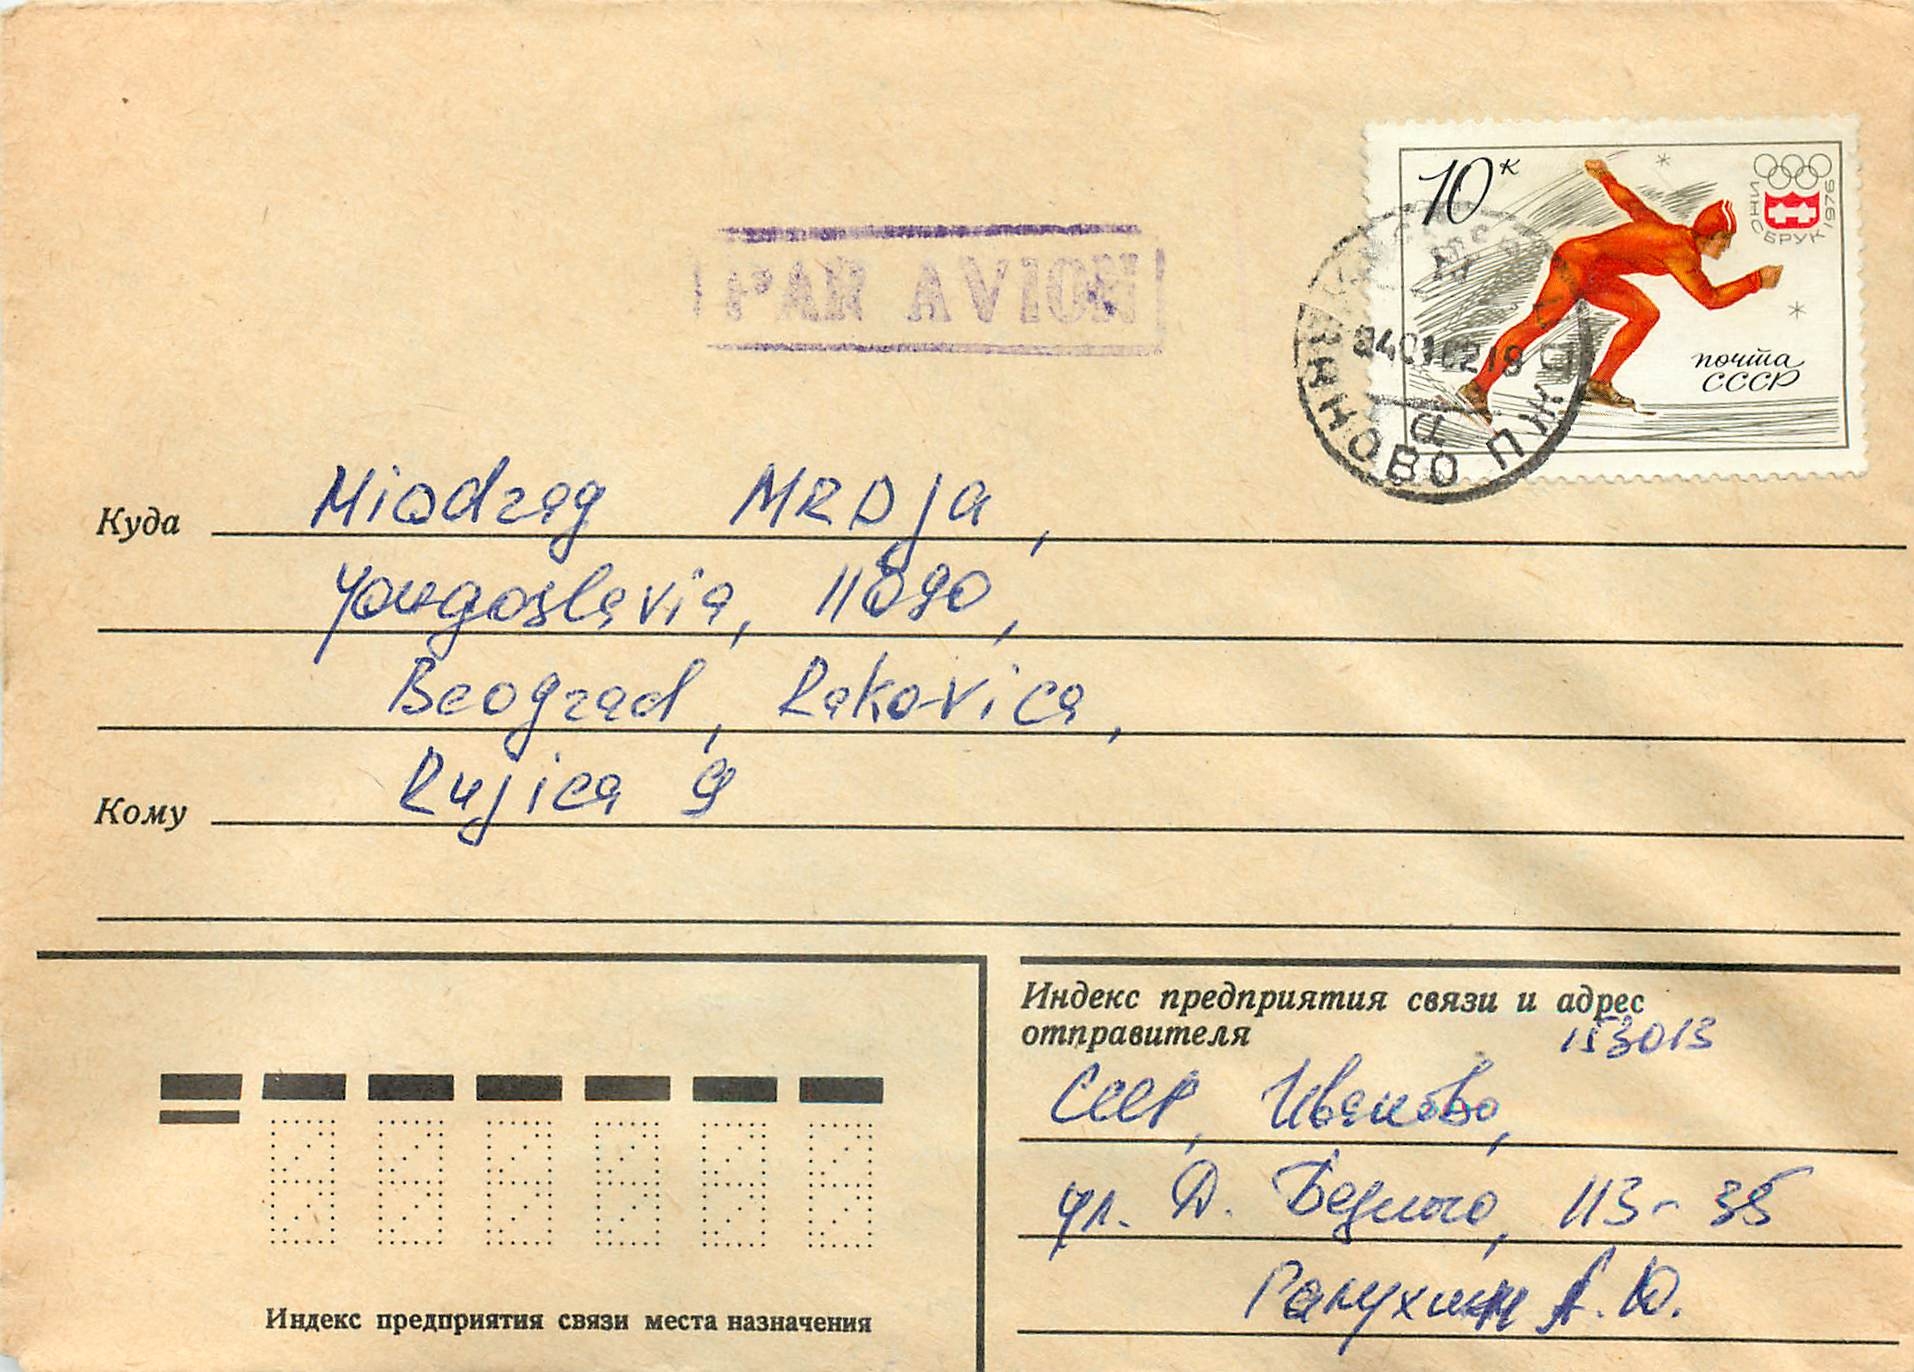 10к
ИНСБРУК 1976
почта
СССР
PAR AVION
ИВАНОВО ПЖДП
Куда Miodrag MRDja,
Yougoslavia, 11090,
Beograd, Rakovica,
Кому Rujica 9
Индекс предприятия связи и адрес
отправителя 153013
СССР, Иваново,
ул. Д. Бедного, 113-35
А.Ю.
Индекс предприятия связи места назначения